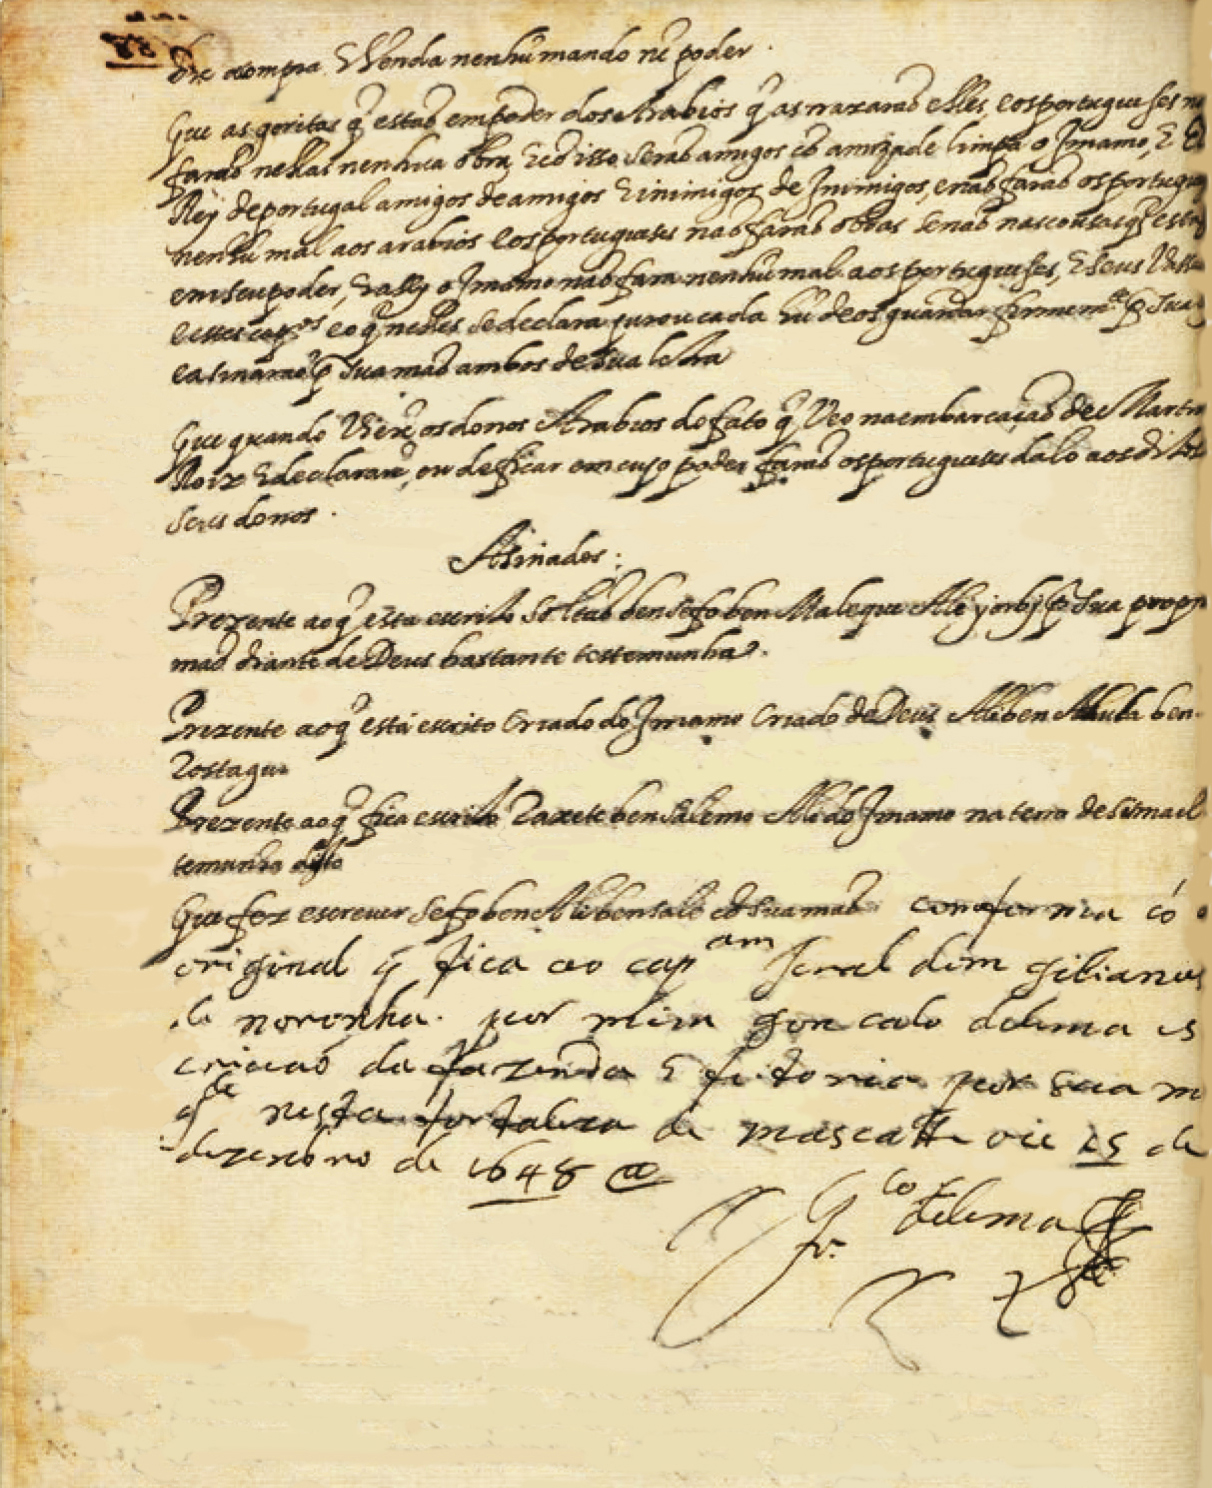 de compra E Venda nenhũ mando nẽ poder.
Que as goritas q̃ estaõ em poder dos Arabios q̃ as rrazaraõ elles, e os portugueses
faraõ nellas nenhũa obra, E cõ isso seraõ amigos cõ amizade limpa o Imamo, E El
Rey de portugal amigos de amigos E inimigos de Inimigos, e naõ faraõ os portugue
nenhũ mal aos arabios e os portugueses naõ faraõ obras senaõ nas cousas q̃ estaõ
em seu poder, E assy o Imamo naõ fara nenhũ mal aos portugueses, E seus Vassa
e estes capos e o q̃ nelles se declara jurou cada hũ de os guardar firmemte p sua
e asinaraõ p sua maõ ambos de sua letra
Que quando Vierẽ os donos Arabios do fato q̃ Veo na embarcaçaõ de Martim
Roiz E declararẽ, ou de ficar em cujo poder faraõ os portugueses dalo aos ditos
seus donos.
Asinados:
Prezente ao q̃ esta escrito Soltaõ ben Sefo ben Maleque Ale yorbj p sua propr
maõ diante de Deus bastante testemunha.
Prezente ao q̃ está escrito Criado do Imamo Criado de Deus Ali ben ben
Prezente ao q̃ fica escrito ben Salemo Ali do Imamo na terra de
temunha disto
Que fez escreuer Sefo ben Ali ben Sale cõ sua maõ conforma có o
original q̃ fica ao capam Jeral dom gilianes
de noronha. por mim goncalo delima es
criuaõ da fazenda E feitoria por sua m
gde nesta fortaleza de mascatte oie 15 de
dezenbro de 1648 @
Gco delima